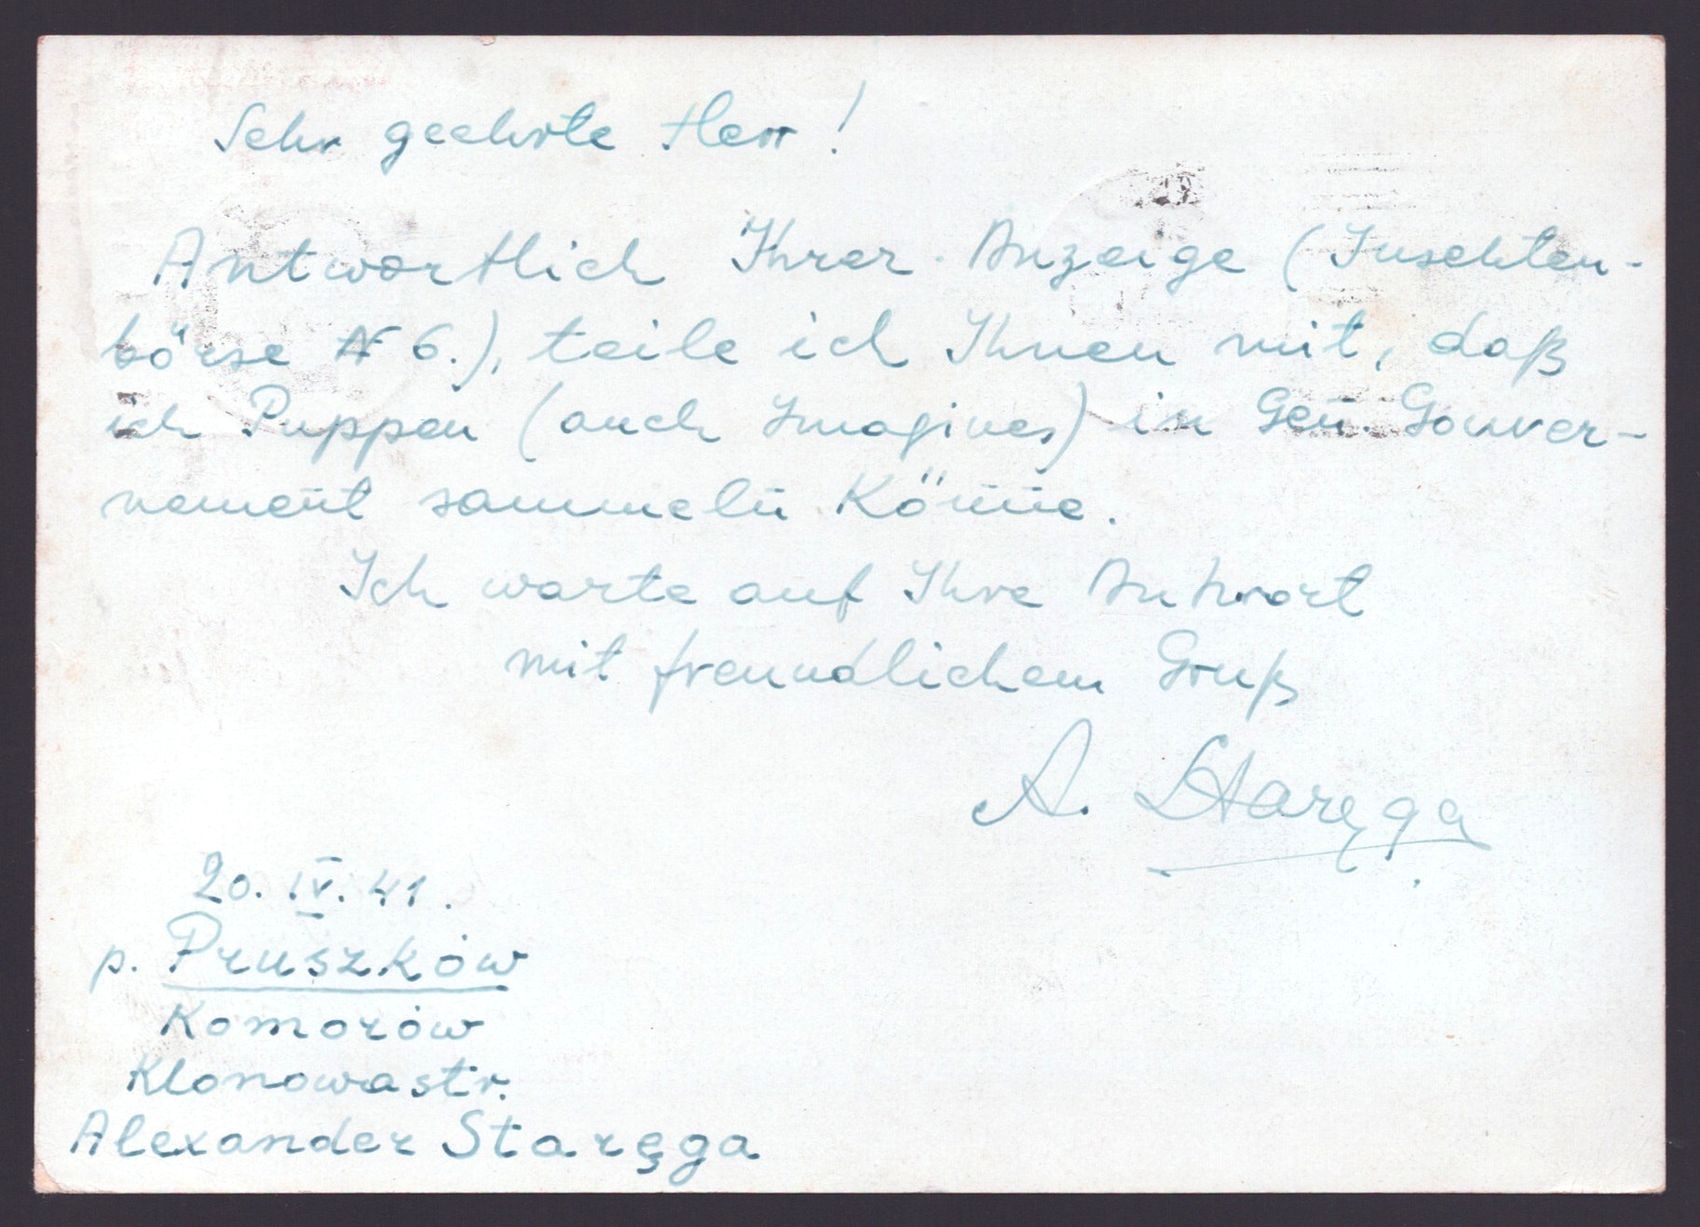 Sehr geehrte Herr!
Antwortlich Ihrer Anzeige (Insekten-
börse № 6.), teile ich Ihnen mit, daß
ich Puppen (auch Imagines) in Gen. Gouver-
nement sammeln könne.
Ich warte auf Ihre Antwort
mit freundlichem Gruß
A. Staręga
20. IV. 41.
p. Pruszków
Komorów
Klonowastr.
Alexander Staręga